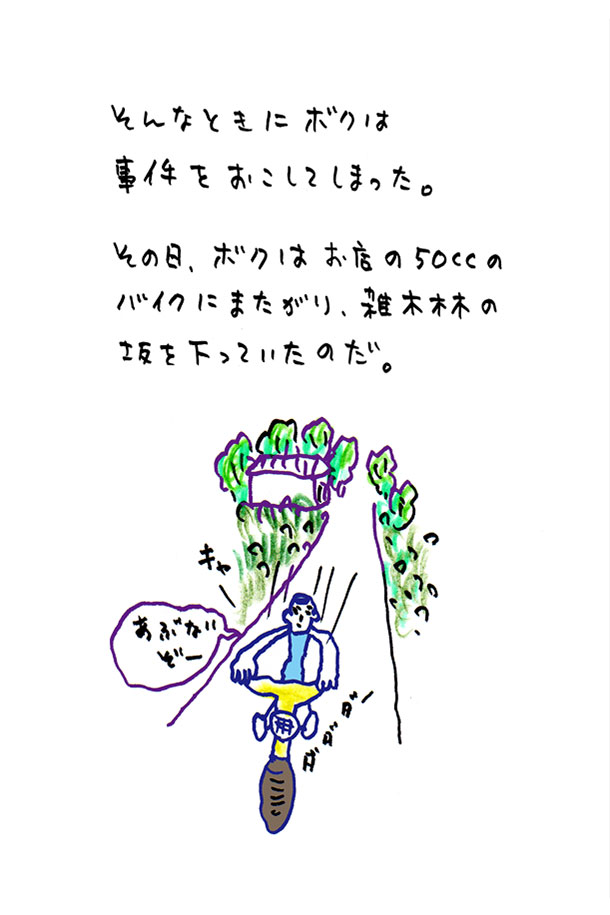 そんなときにボクは
事件をおこしてしまった。
その日、ボクはお店の50ccの
バイクにまたがり、雑木林の
坂を下っていたのだ。
キャー
あぶない
ぞー
ダダダー